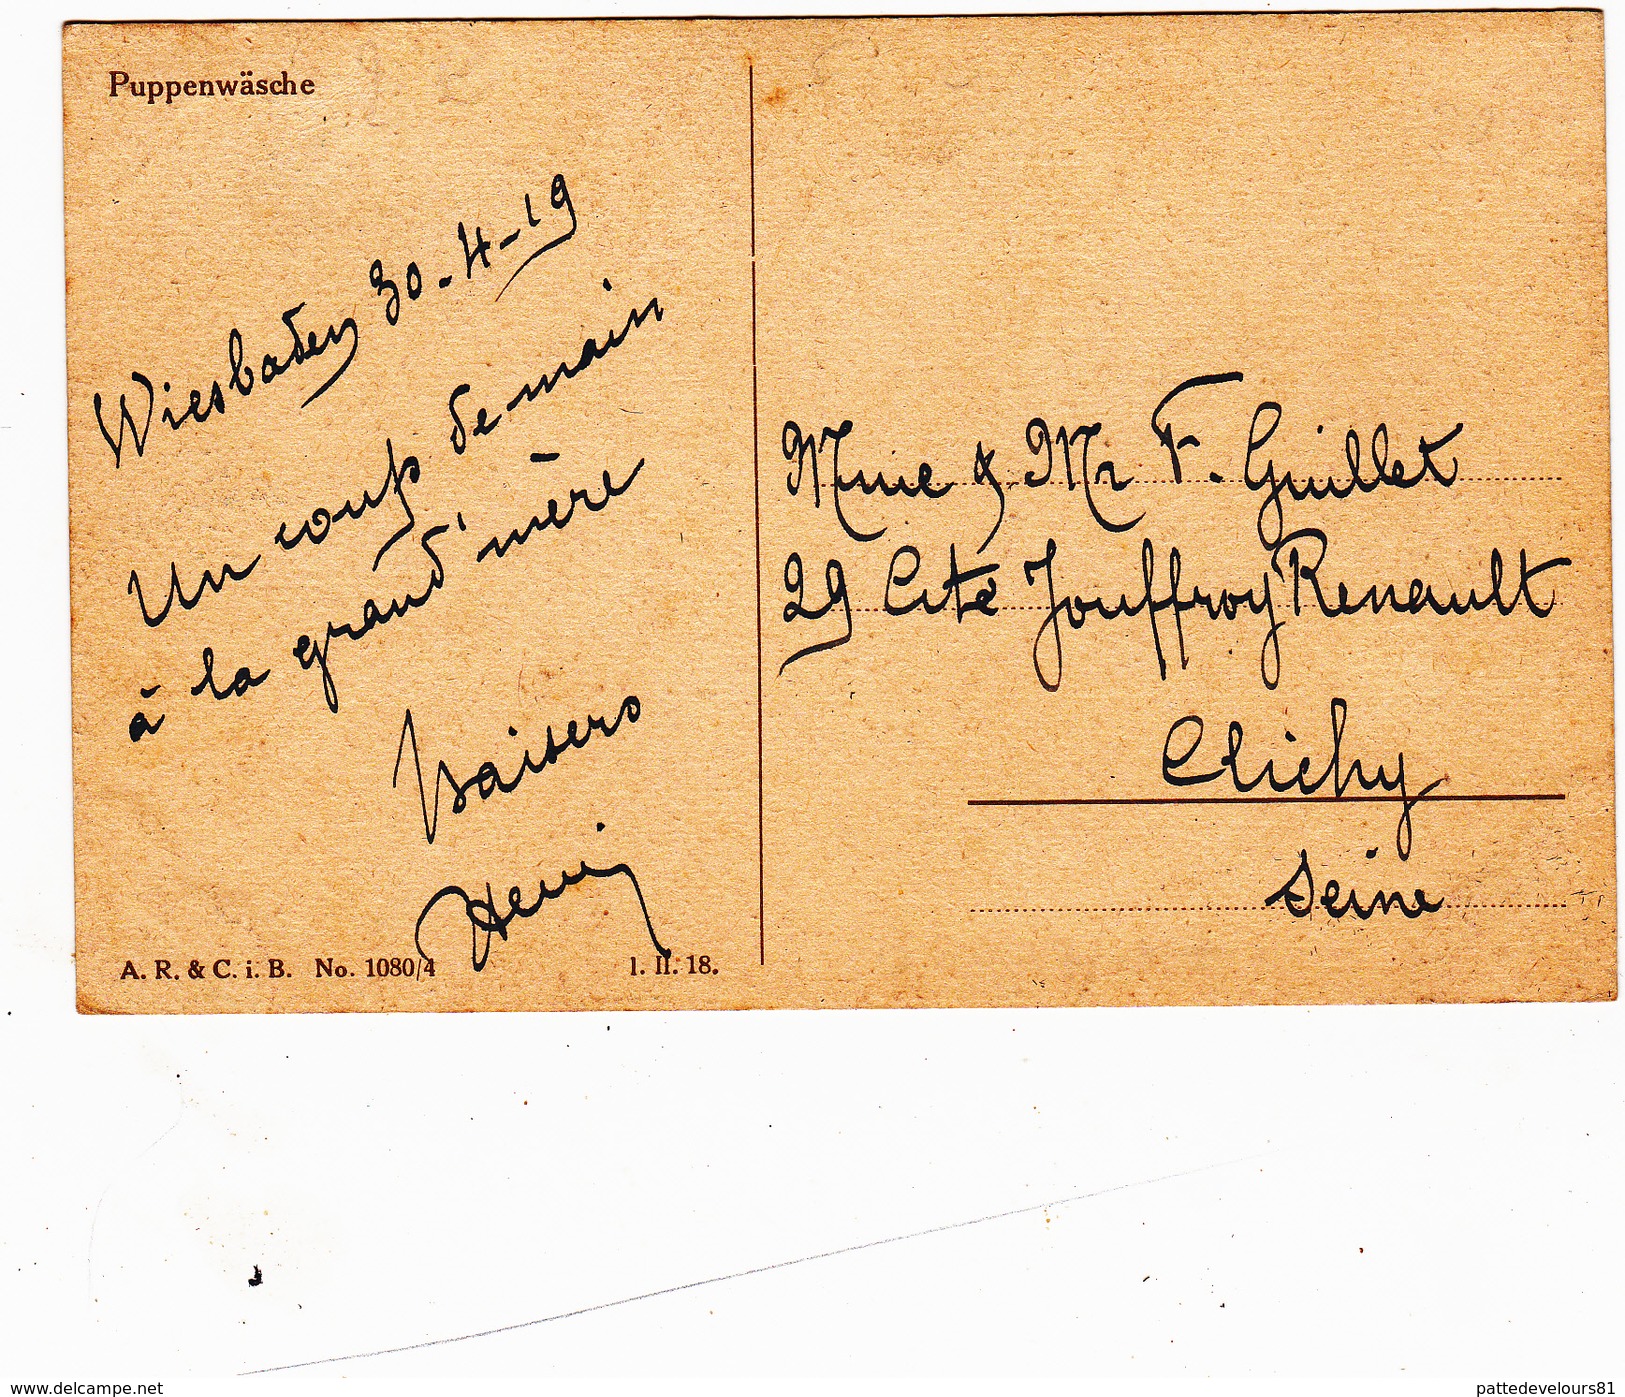 Puppenwäsche
Wiesbaden 30-4-19
Un coup de main
à la grand'mère
Baisers
Henri
A. R. & C. i. B. No. 1080/4
1. II. 18.
Mme & Mr F. Guillet
29 Cité Jouffroy Renault
Clichy
Seine
delcampe.net
pattedevelours81